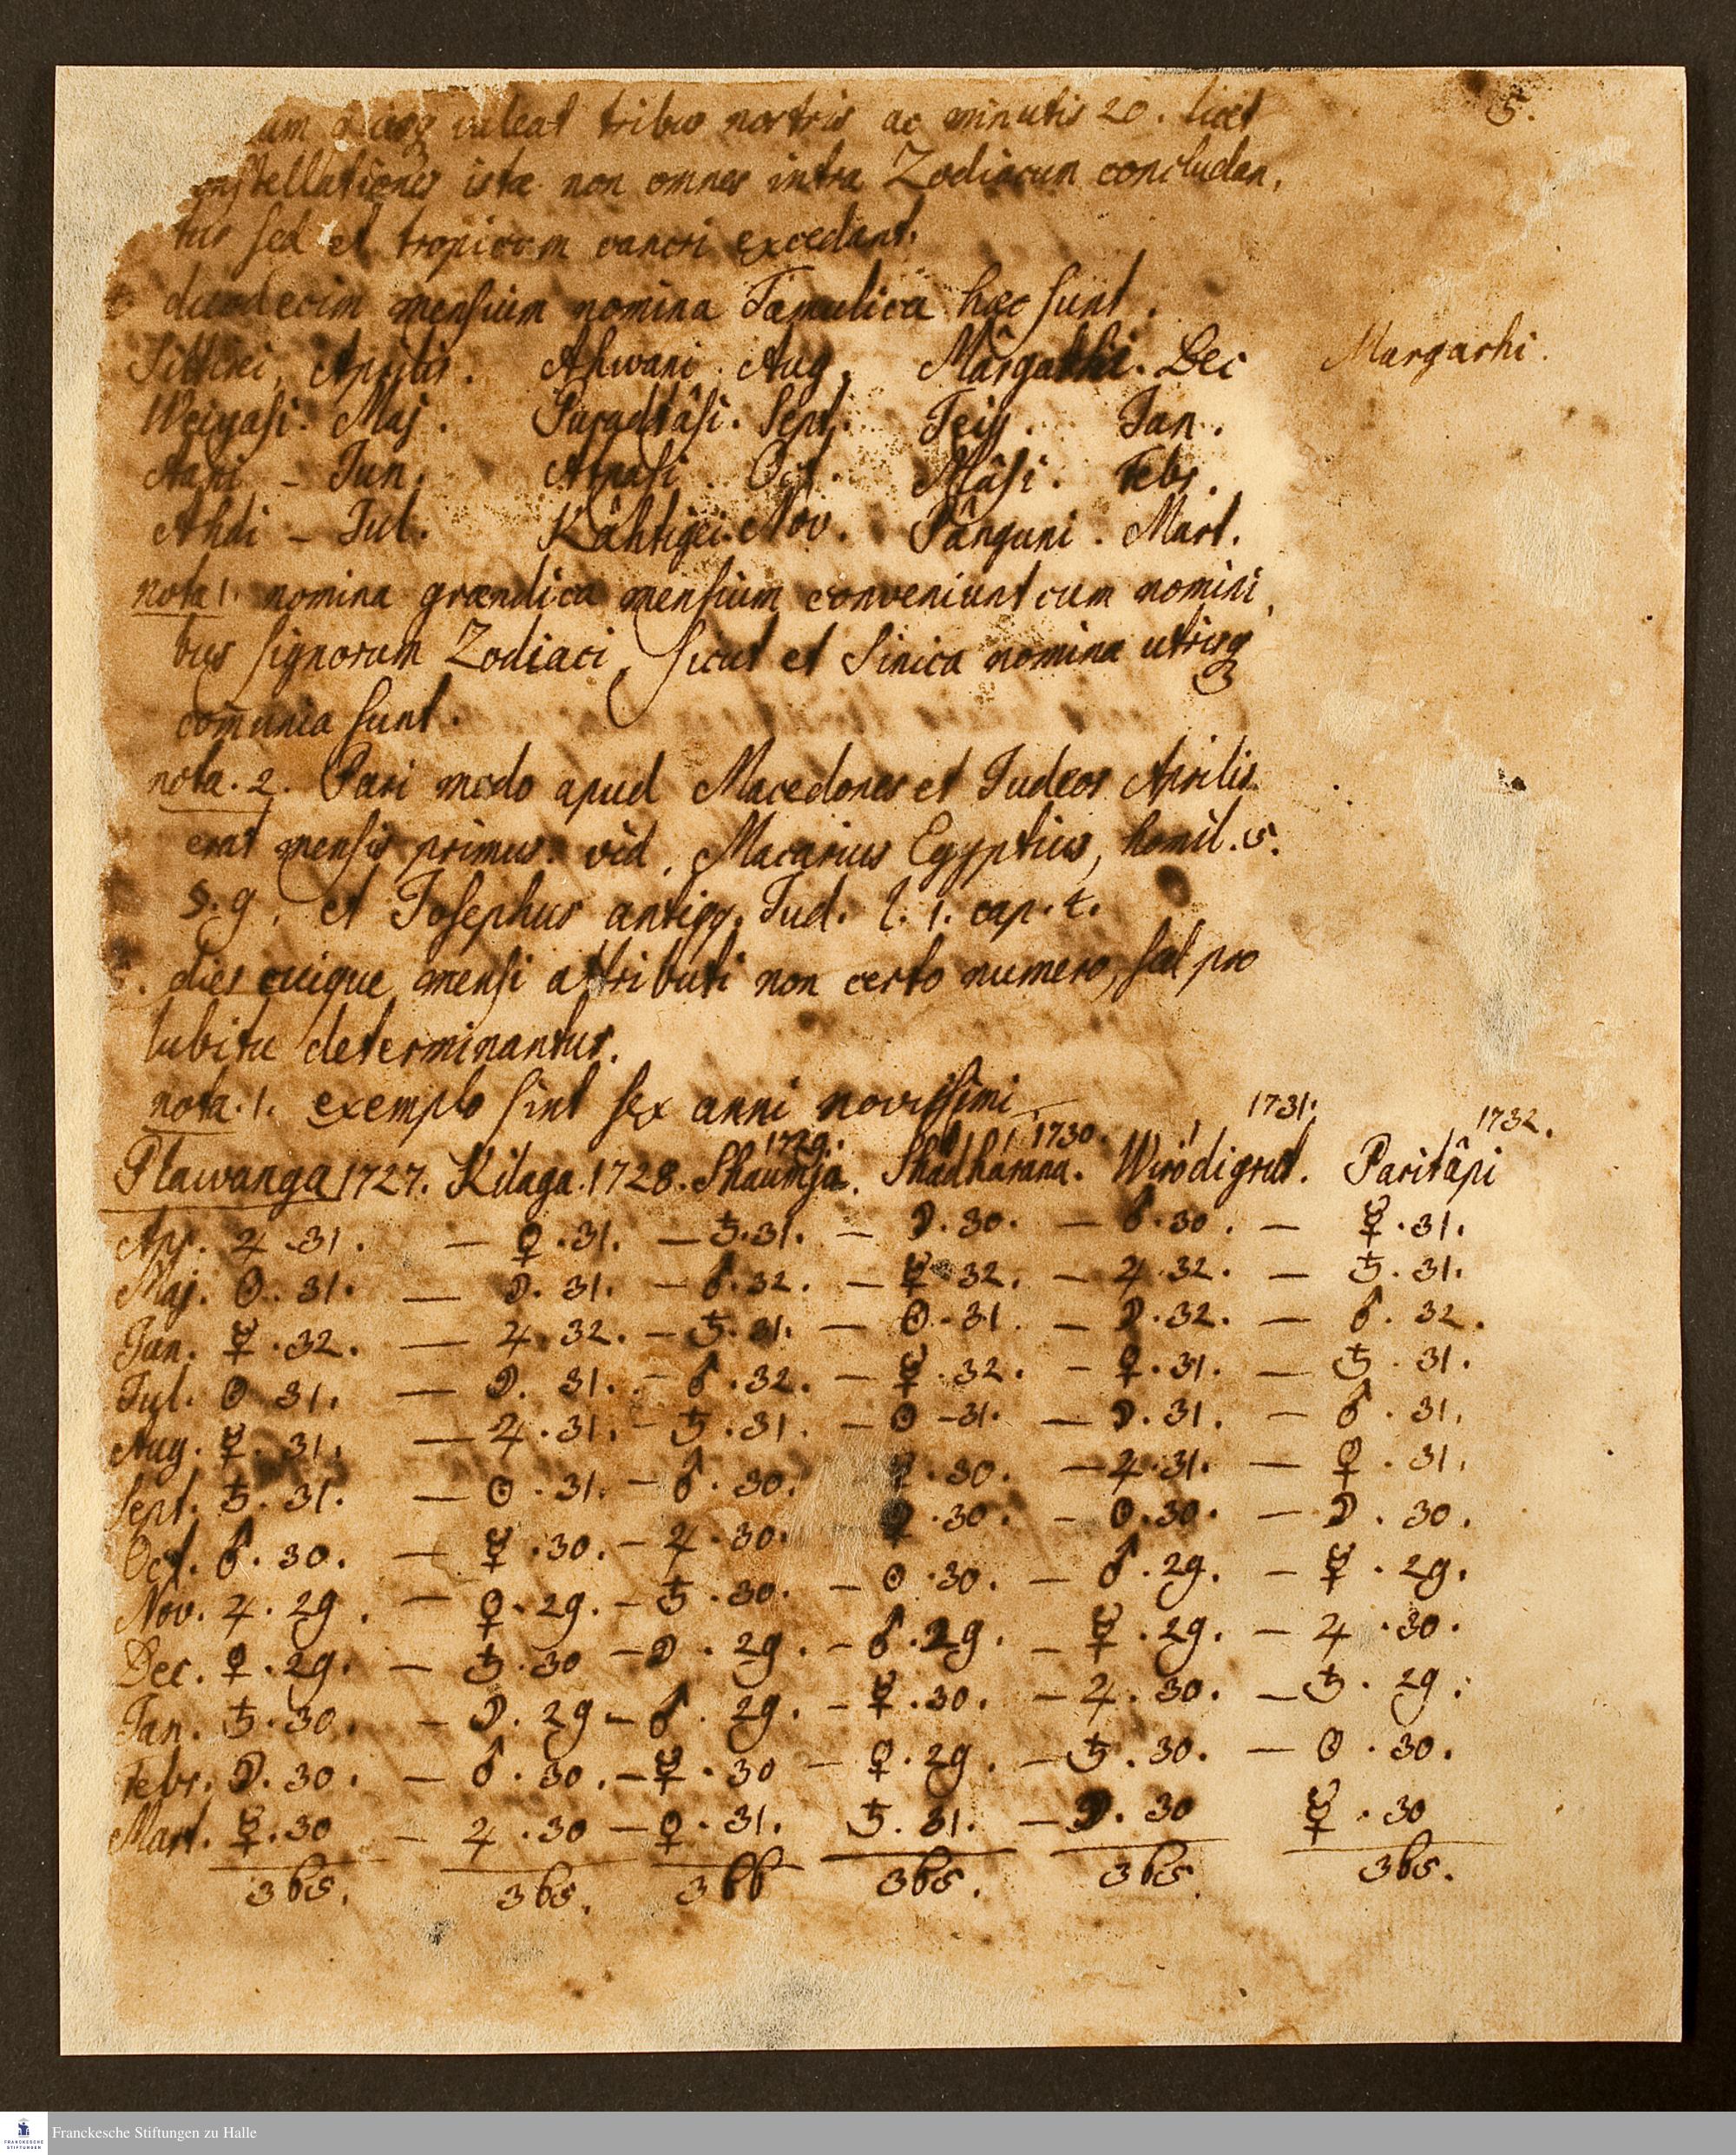 5.
valeat tribus nostris ac minutis 20. licet
onstellationes istæ non omnes intra Zodiacum concludan,
tur sed et tropicum cancri excedant.
duodecim mensium nomina Tamulica hæc sunt.
Sittirei, Aprilis. Ahwani. Aug. Mârgarhi. Dec Margarhi.
Weiyasi. Maj. Sept. Teiy. Jan.
Aani – Jun. Arpasi. Oct. Mâsi. Febr.
Ahdi – Jul. Kâhtigei. Nov. Pânguni. Mart.
nota 1. nomina grændica mensium conveniunt cum nomini,
bus signorum Zodiaci, sicut et Sinica nomina utrisq3
com̄unia sunt.
nota. 2. Pari modo apud Macedones et Judeos Aprilis
erat mensis primus. vid. Macarius Egyptius, homil. 5.
S. 9. et Josephus antiqq. Jud. l. 1. cap. 4.
dies cuique mensi attributi non certo numero, sed pro
lubitu determinantur.
nota. 1. exemplo sint sex anni novissimi
1729. 1730. 1731. 1732.
Plawanga 1727. Kilaga. 1728. Shaumja. Shâdhârana. Wirôdigrut. Paritâpi
Apr. ♃. 31. — ♀. 31. — ♄. 31. — ☽. 30. — ♂. 30. — ☿. 31.
Maj. ☉. 31. — ☽. 31. — ♂. 32. — ☿ 32. — ♃. 32. — ♄. 31.
Jun. ☿. 32. — ♃. 32. — ♄. 31. — ☉. 31. — ☽. 32. — ♂. 32.
Jul. ☉ 31. — ☽. 31. — ♂. 32. — ☿. 32. — ♀. 31. — ♄. 31.
Aug. ☿. 31. — ♃. 31. — ♄. 31. — ☉ – 31. — ☽. 31. — ♂. 31.
Sept. ♄. 31. — ☉. 31. — ♂. 30. 30. — ♃. 31. — ♀. 31.
Oct. ♂. 30. — ☿. 30. — ♃. 30. ♀. 30. — ☉. 30. — ☽. 30.
Nov. ♃. 29. — ♀. 29. — ♄. 30. — ☉. 30. — ♂. 29. — ☿. 29.
Dec. ♀. 29. — ♄. 30 — ☽. 29. — ♂. 29. — ☿. 29. — ♃. 30.
Jan. ♄. 30. — ☽. 29 — ♂. 29. — ☿. 30. — ♃. 30. — ♄. 29.
Febr. ☽. 30. — ♂. 30. — ☿. 30 — ♀. 29. — ♄. 30. — ☉. 30.
Mart. ☿. 30 — ♃. 30 — ♀. 31. ♄. 31. — ☽. 30 ☿. 30
365. 365. 366 365. 365. 365.
FRANCKESCHE STIFTUNGEN
Franckesche Stiftungen zu Halle